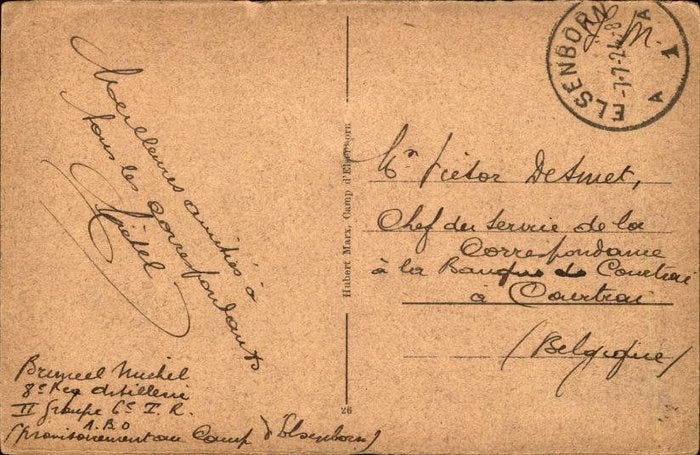 Meilleures amitiés à
tous les correspondants
Michel
Bruneel Michel
8e Reg d'artillerie
II Groupe 6e I. R.
A.B.O
(provisoirement au Camp d'Elsenborn)
Hubert Marx, Camp d'Elsenborn
26
ELSENBORN
A 1 A
S. M.
Mr Victor DeSmet,
Chef du service de la
Correspondance
à la Banque de Courtrai
à Courtrai
(Belgique)